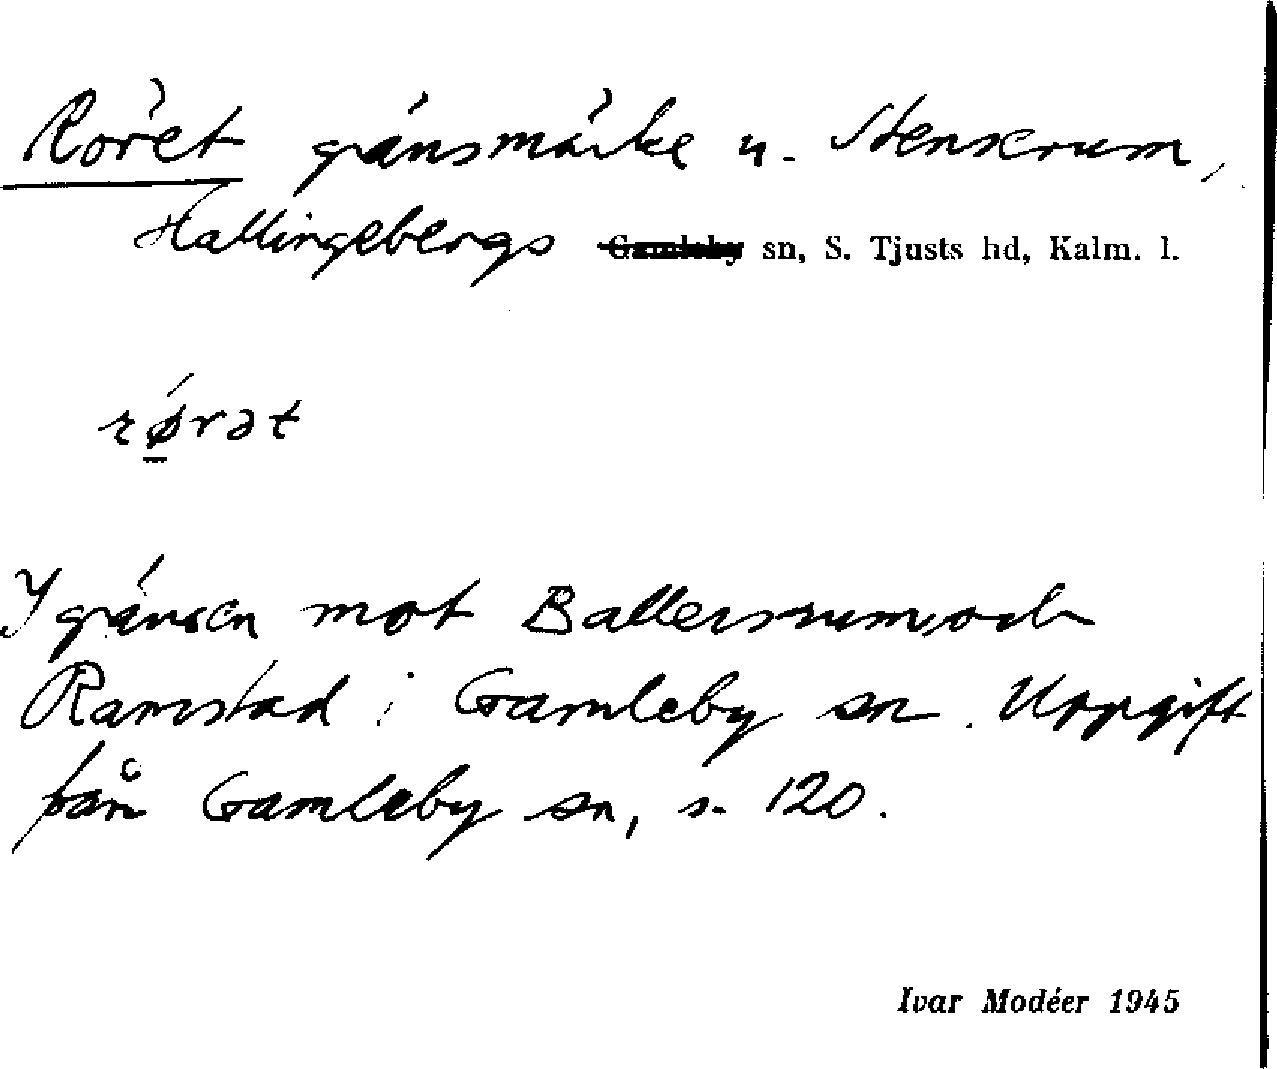 Röret gränsmärke u. Stenserum,
Hallingebergs Gamleby sn, S. Tjusts hd, Kalm. l.
rǿrət
I gränsen mot Ballersrum och
Ramstad i Gamleby sn. Uppgift
från Gamleby sn, s. 120.
Ivar Modéer 1945